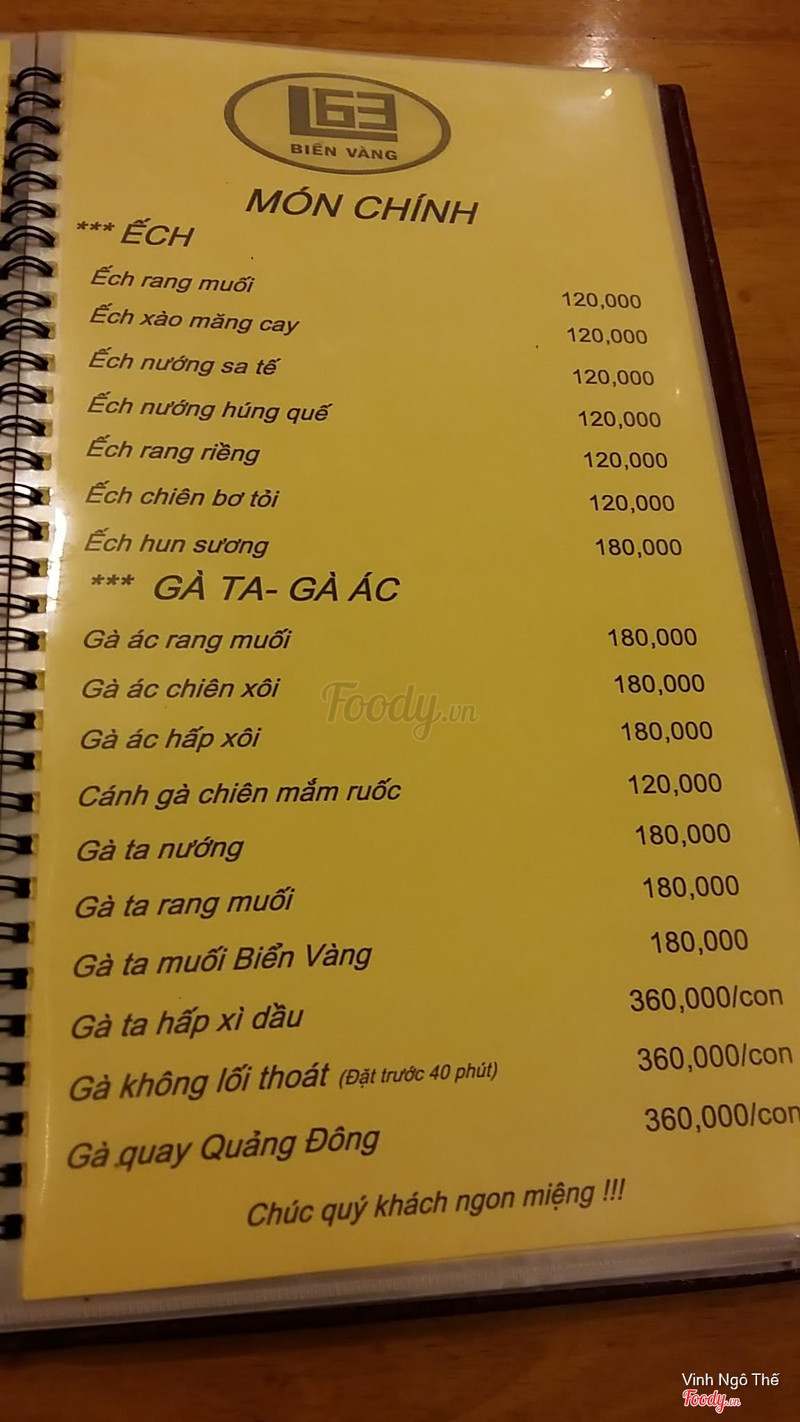 L63
BIỂN VÀNG
MÓN CHÍNH
*** ẾCH
Ếch rang muối 120,000
Ếch xào măng cay 120,000
Ếch nướng sa tế 120,000
Ếch nướng húng quế 120,000
Ếch rang riềng 120,000
Ếch chiên bơ tỏi 120,000
Ếch hun sương 180,000
*** GÀ TA- GÀ ÁC
Gà ác rang muối 180,000
Gà ác chiên xôi 180,000
Foody.vn
Gà ác hấp xôi 180,000
Cánh gà chiên mắm ruốc 120,000
Gà ta nướng 180,000
Gà ta rang muối 180,000
Gà ta muối Biển Vàng 180,000
Gà ta hấp xì dầu 360,000/con
Gà không lối thoát (Đặt trước 40 phút) 360,000/con
Gà quay Quảng Đông 360,000/con
Chúc quý khách ngon miệng !!!
Vinh Ngô Thế
Foody.vn